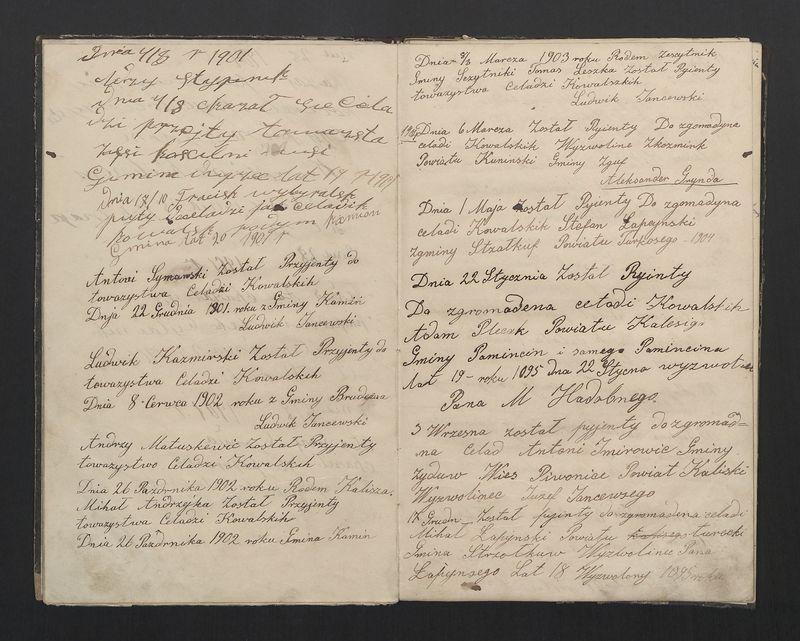 Dnia 4/8 r 1901
Jerzy Stypenik
dnia 4/8 okazał się Cela
dzi przyjty towarzsta
lat 19 r 1901
dnia 17/10
pyty Czeladzi jak celadnik
Kowalsk rodym Kamion
Gmina lat 20 1901 r
Antoni Symański został Przyjenty do
towazystwa Celadzi Kowalskich
Dnja 22 Grudnia 1901. roku z Gminy Kamiń
Ludwik Jancewski
Ludwik Kazmirski Został Przyjenty do
towazystwa Celadzi Kowalskih
Dnia 8 Cerwca 1902 roku z Gminy Brudzewa
Ludwik Jancewski
Andrzy Matuskewic Został Przyjenty
towazystwo Celadzi Kowalskih
Dnia 26 Pazdrnika 1902 roku Rodem Kalisza,
Mihał Andrzyjka Został Przyjenty
towazystwa Celadzi Kowalskih
Dnia 26 Pazdrnika 1902 roku Gmina Kamin
Dnia 2/3 Marcza 1903 roku Rodem Zescytnik
Gminy Sczytniki Tomas Leszka Zostal Pyienty
towazystwa Celadzi Kowalskih
Ludwik Jancewski
1904 Dnia 6 Marcza Zostal Pyienty Do zgomadyna
celadi Kowalskih Wyzwoline Zkozmink
Powiatu Kuninski Gminy Zguf
Aleksander Gwynda
Dnia 1 Maja Został Pyienty Do zgomadyna
celadi Kowalskik Stefan Łapcynski
zgminy Strzatkuf Powiatu Turkosego 1904
Dnia 22 Stycznia Zostal Pyinty
Do zgromadena celadi Kowalskih
Adam Plecak Powiatu Kalesigo
Gminy Pamincin i samego Pamincina
lat 19 - roku 1895 dna 22 Stycna wyzwolin
Pana M Hadobnego.
3 Wrzesna został pyjenty do zgromad-
na celad Antoni Imirowic Gminy
Zyduw Wies Piwonice Powiat Kaliski
Wyzwolinec Juzef Jancewsego
17 Grudn Został pyinty do zgromadena celadi
Mihal Lapynski Powiatu turecki
Gmina Strzotkuw Wyzwolinec Pana
Łapynsego Lat 18 Wyzwolony 1895 roku